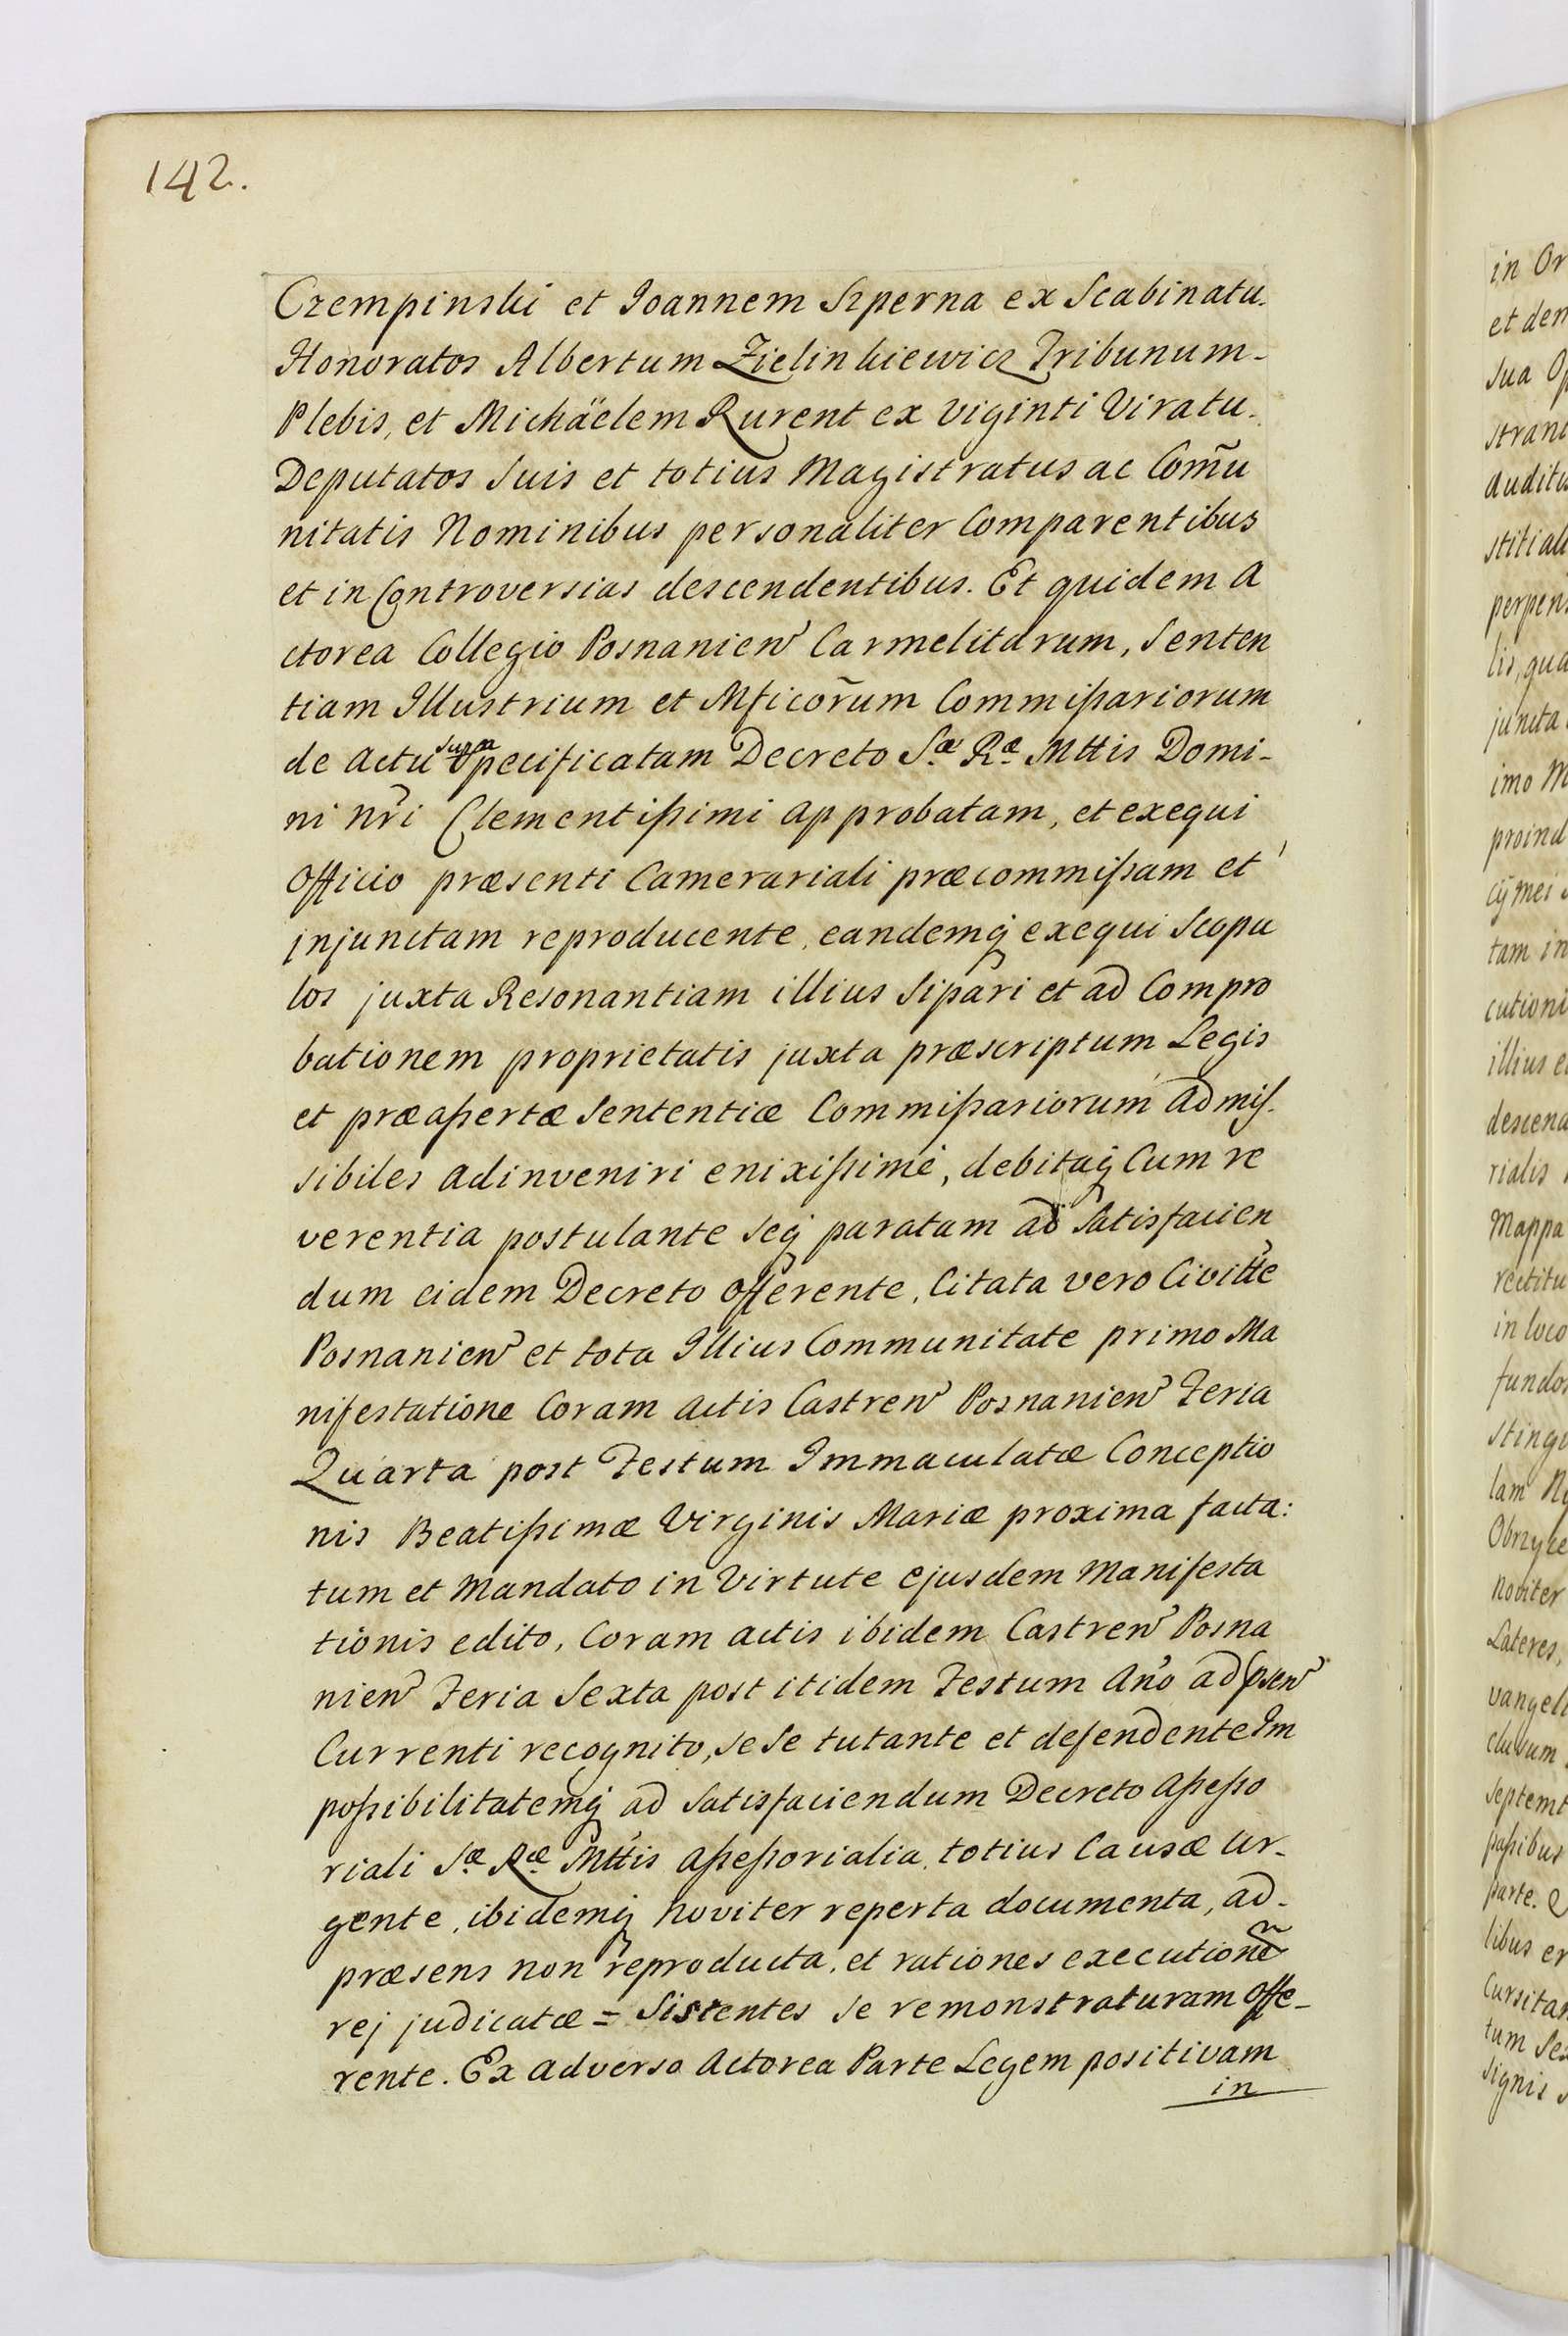 142.
Czempinski et Joannem Szperna ex Scabinatu.
Honoratos Albertum Zielinkiewicz Tribunum-
Plebis, et Michäelem Rurent ex viginti Viratu.
Deputatos Suis et totius Magistratus ac Com̃u
nitatis Nominibus personaliter Comparentibus
et in Controversias descendentibus. Et quidem A
ctorea Collegio Posnanien Carmelitarum, Senten
tiam Illustrium et Mficor̃um Commißariorum
de actu supra specificatam Decreto Sæ Ræ Mttis Domi-
ni Nri Clementißimi approbatam, et exequi
Officio præsenti Camerariali præcommißam et
injunctam reproducente, eandemq exequi Scopu
los juxta Resonantiam illius Sipari et ad Compro
bationem proprietatis juxta præscriptum Legis
et præaßertæ Sententiæ Commißariorum admis-
sibiles adinveniri enixißimé, debitaq Cum re
verentia postulante seq paratam ad Satisfacien
dum eidem Decreto offerente, Citata vero Civitte
Posnanien et tota Illius Communitate primo Ma
nifestatione Coram actis Castren Posnanien Feria
Quarta post Festum Immaculatæ Conceptio
nis Beatißimæ Virginis Mariæ proxima facta:
tum et Mandato in Virtute ejusdem Manifesta
tionis edito, Coram actis ibidem Castren Posna
nien Feria Sexta post itidem Festum Año ad psen
Currenti recognito, sese tutante et defendente Im
poßibilitatemq ad Satisfaciendum Decreto Aßeßo
riali Sæ Ræ Mttis Aßeßorialia totius Causæ Ur-
gente, ibidemq noviter reperta documenta, ad-
præsens non reproducta, et rationes execution̄e
rej judicatæ = Sistentes se remonstraturam offe-
rente. Ex adverso Actorea Parte Legem positivam
in
in Or
et dem
sua Op
stran
audit
stitial
perpen
lis, qua
juncta
imo M
proind
cÿmei
tam in
cutioni
illius e
descend
rialis
Mappa
rectitu
in loco
fundos
sting
lam N
Obrzyc
noviter
Lateres,
vangel
clusum
Septemt
paßibus
parte. Q
libus er
Cursitan
tum Se
signis s